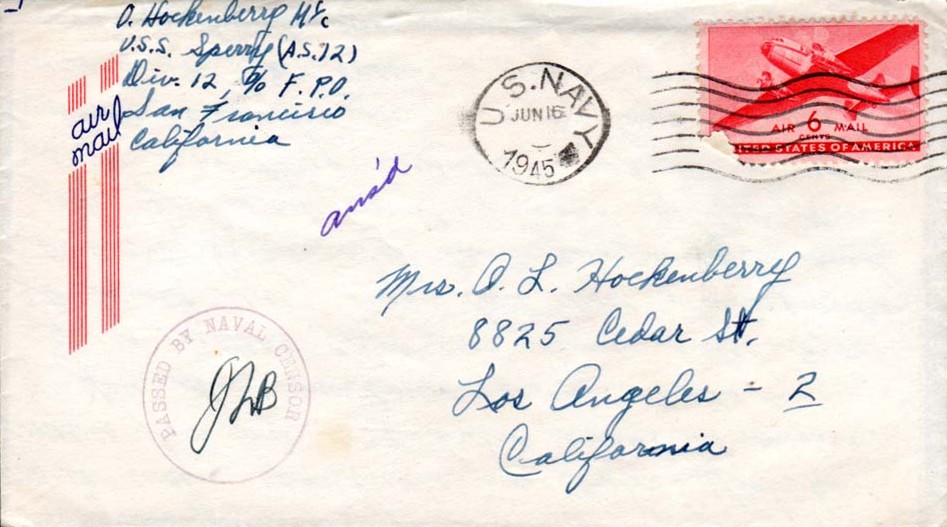 O. Hockenberry M 1/c
U.S.S. Sperry (A.S.12)
Div. 12, % F.P.O.
San Francisco
California
air
mail
U.S. NAVY
JUN 16
1945
AIR 6 MAIL
CENTS
UNITED STATES OF AMERICA
ans'd
Mrs. O. L. Hockenberry
8825 Cedar St.
Los Angeles - 2
California
PASSED BY NAVAL CENSOR